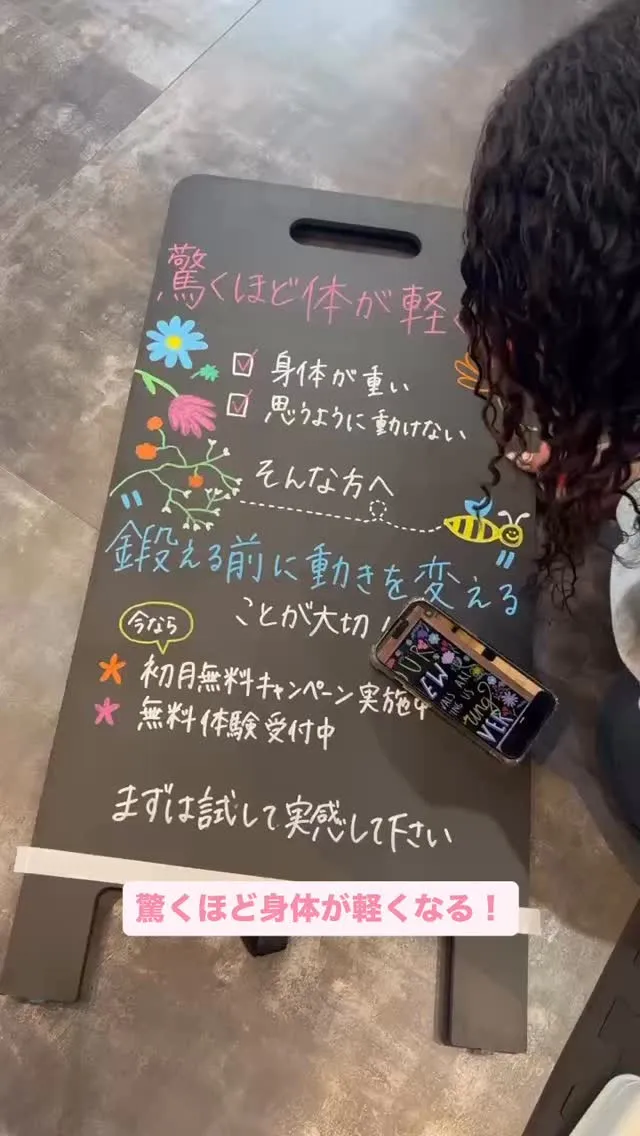 驚くほど体が軽く
身体が重い
思うように動けない
そんな方へ
"鍛える前に動きを変える"
ことが大切！
今なら
初月無料キャンペーン実施中
無料体験受付中
まずは試して実感して下さい
驚くほど身体が軽くなる！